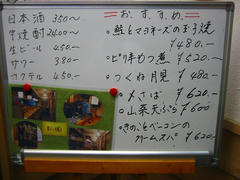 日本酒 350〜
芋焼酎 2400〜
生ビール 450.-
サワー 380-
カクテル 450.-
=お.す.す.め.=
・鮭とマヨネーズの玉子焼
¥480.-
・ピリ辛もつ煮 ¥520.〜
・つくね月見 ¥480.-
・〆さば ¥620.-
・山菜天ぷら ¥600
・きのことベーコンの
クリームスパ ¥620.-